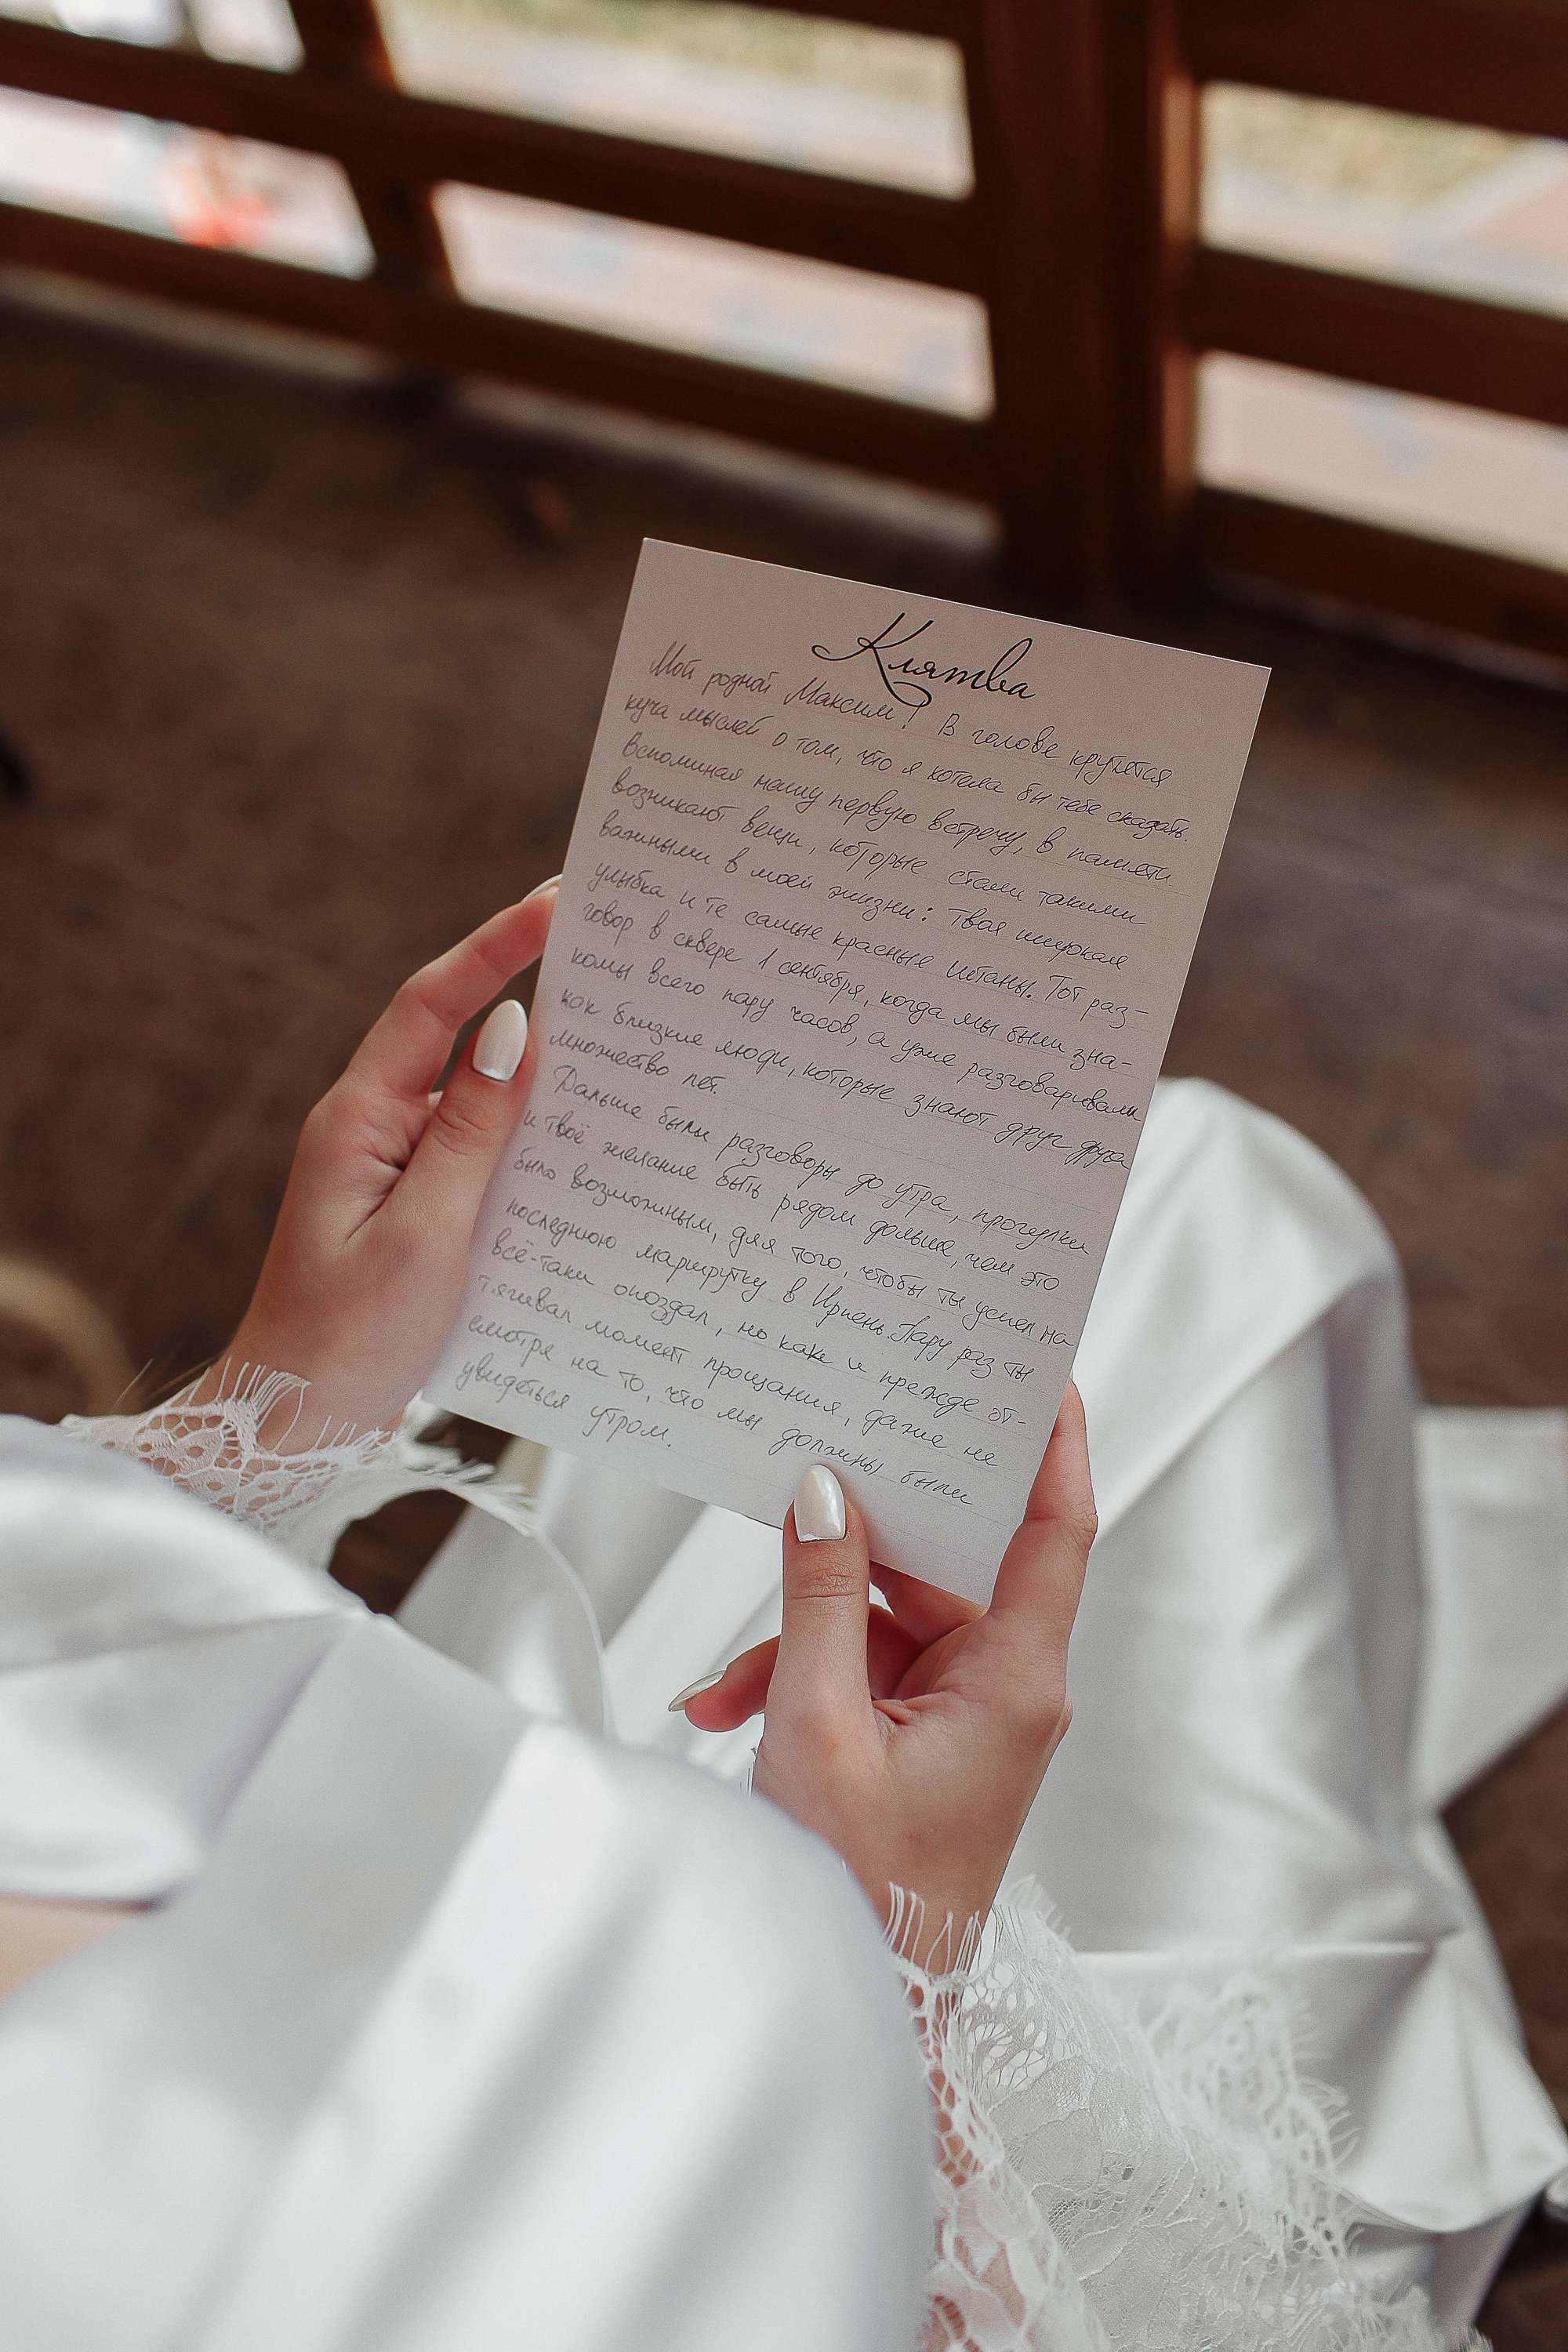 Клятва
Мой родной Максим! В голове крутятся
куча мыслей о том, что я хотела бы тебе сказать.
Вспоминая нашу первую встречу, в памяти
возникают вещи, которые стали такими
важными в моей жизни: твоя широкая
улыбка и те самые красные штаны. Тот раз-
говор в сквере 1 сентября, когда мы были зна-
комы всего пару часов, а уже разговаривали
как близкие люди, которые знают друг друга
множество лет.
Дальше были разговоры до утра, прогулки
и твоё желание быть рядом дольше, чем это
было возможным, для того, чтобы ты успел на
последнюю маршрутку в Ирпень. Пару раз ты
всё-таки опоздал, но как и прежде от-
тягивал момент прощания, даже не
смотря на то, что мы должны были
увидеться утром.